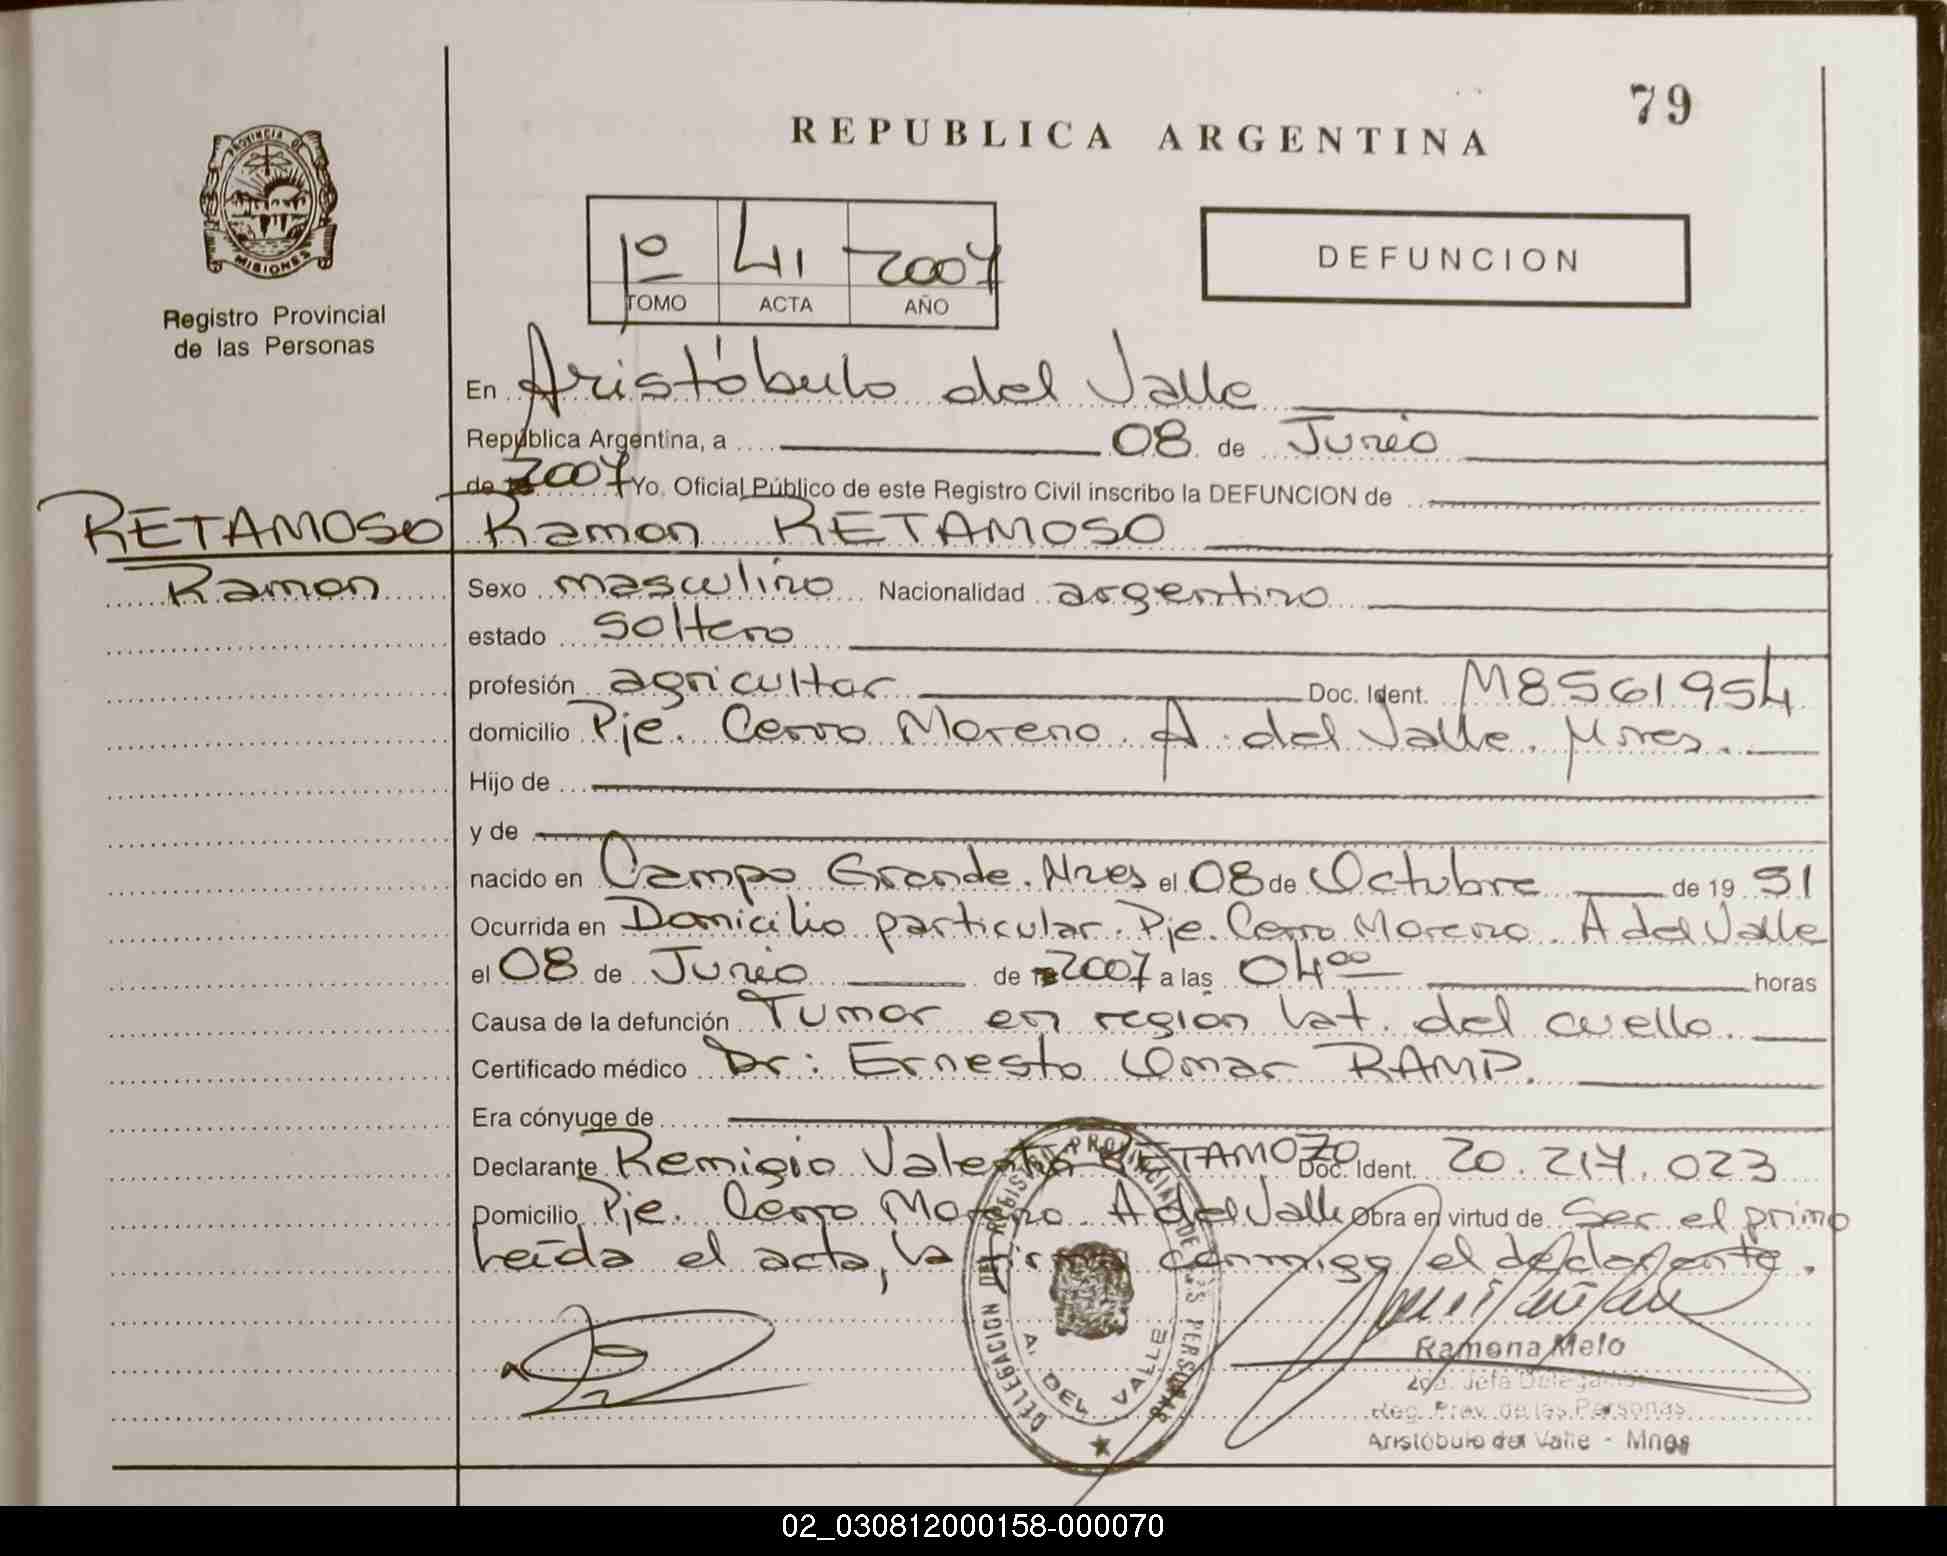 79
REPUBLICA ARGENTINA
PROVINCIA DE MISIONES
Registro Provincial
de las Personas
1º 41 2007
TOMO ACTA AÑO
DEFUNCION
En Aristóbulo del Valle
República Argentina, a 08 de Junio
de 2007 Yo, Oficial Público de este Registro Civil inscribo la DEFUNCION de
RETAMOSO Ramon RETAMOSO
Ramon
Sexo masculino Nacionalidad argentino
estado soltero
profesión agricultor Doc. Ident. M8561954
domicilio Pje. Cerro Moreno. A. del Valle. Mnes.
Hijo de
y de
nacido en Campo Grande. Mnes el 08 de Octubre de 19 51
Ocurrida en Domicilio particular. Pje. Cerro Moreno. A del Valle
el 08 de Junio de 2007 a las 04⁰⁰ horas
Causa de la defunción Tumor en region lat. del cuello.
Certificado médico Dr: Ernesto Omar RAMP.
Era cónyuge de
Declarante Remigio Valentin RETAMOZO Doc. Ident. 20.217.023
Domicilio Pje. Cerro Moreno. A del Valle Obra en virtud de Ser el primo
Leída el acta, la firma conmigo el declarante.
DELEGACION DEL REGISTRO PROVINCIAL DE LAS PERSONAS
A. DEL VALLE
Ramona Melo
2da. Jefa Delegación
Reg. Prov. de las Personas
Aristóbulo del Valle - Mnes
02_030812000158-000070